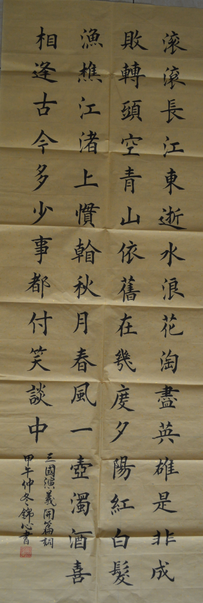 滾滾長江東逝水浪花淘盡英雄是非成
敗轉頭空青山依舊在幾度夕陽紅白髮
漁樵江渚上慣秋月春風一壺濁酒喜
相逢古今多少事都付笑談中
三國演義開篇詞
甲午仲冬錦心書